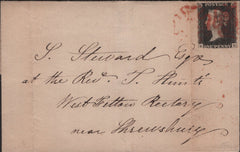 POSTAGE
S. Steward Esqr
at the Revd. T. Hunt's
West Felton Rectory
near Shrewsbury